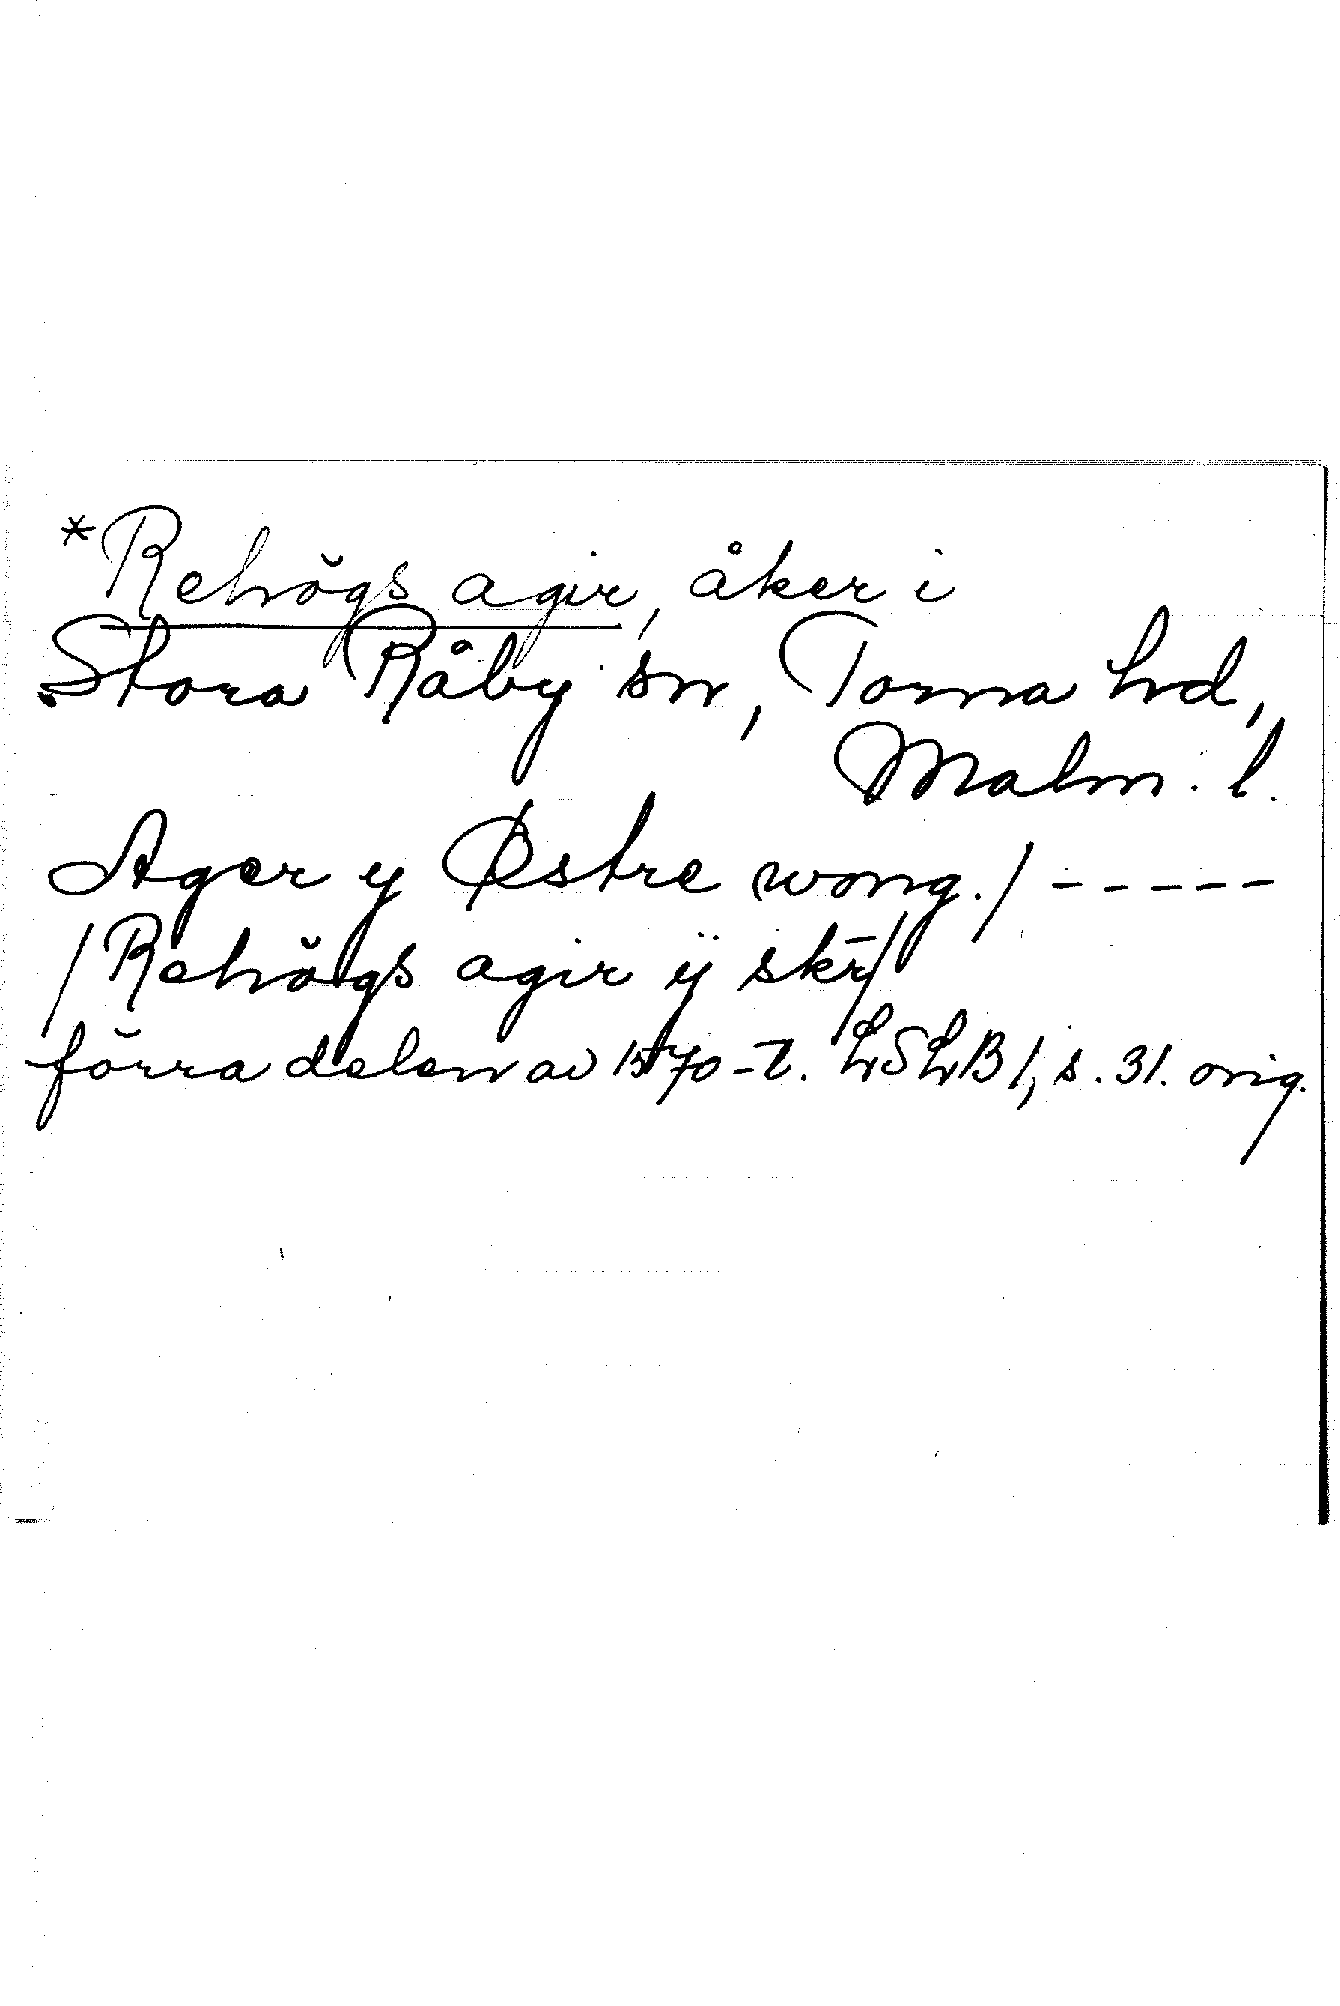 *Rehögs agir, åker i
Stora Råby sn, Torna hd,
Malm. l.
Ager y Østre wong./ -----
/Rehögs agir ÿ skr̄/
förra delen av 1570-t. LSLB 1, s. 31. orig.